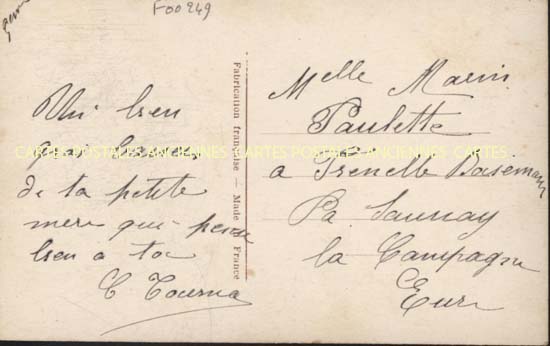 F00249
Un bien
gros baiser
de ta petite
mere qui pense
bien a toi
C Tourna
Fabrication française — Made in France
Melle Marin
Paulette
a
La Saunay
la Campagne
Eure
CARTES POSTALES ANCIENNES CARTES POSTALES ANCIENNES CARTES